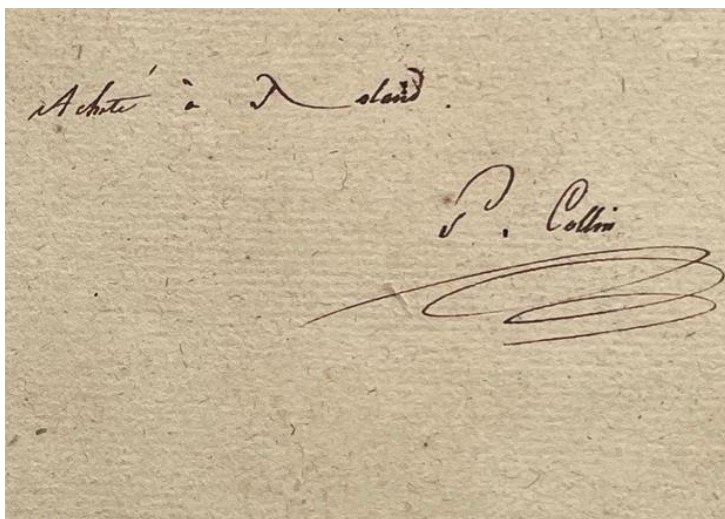 Acheté à Roland.
P. Collin